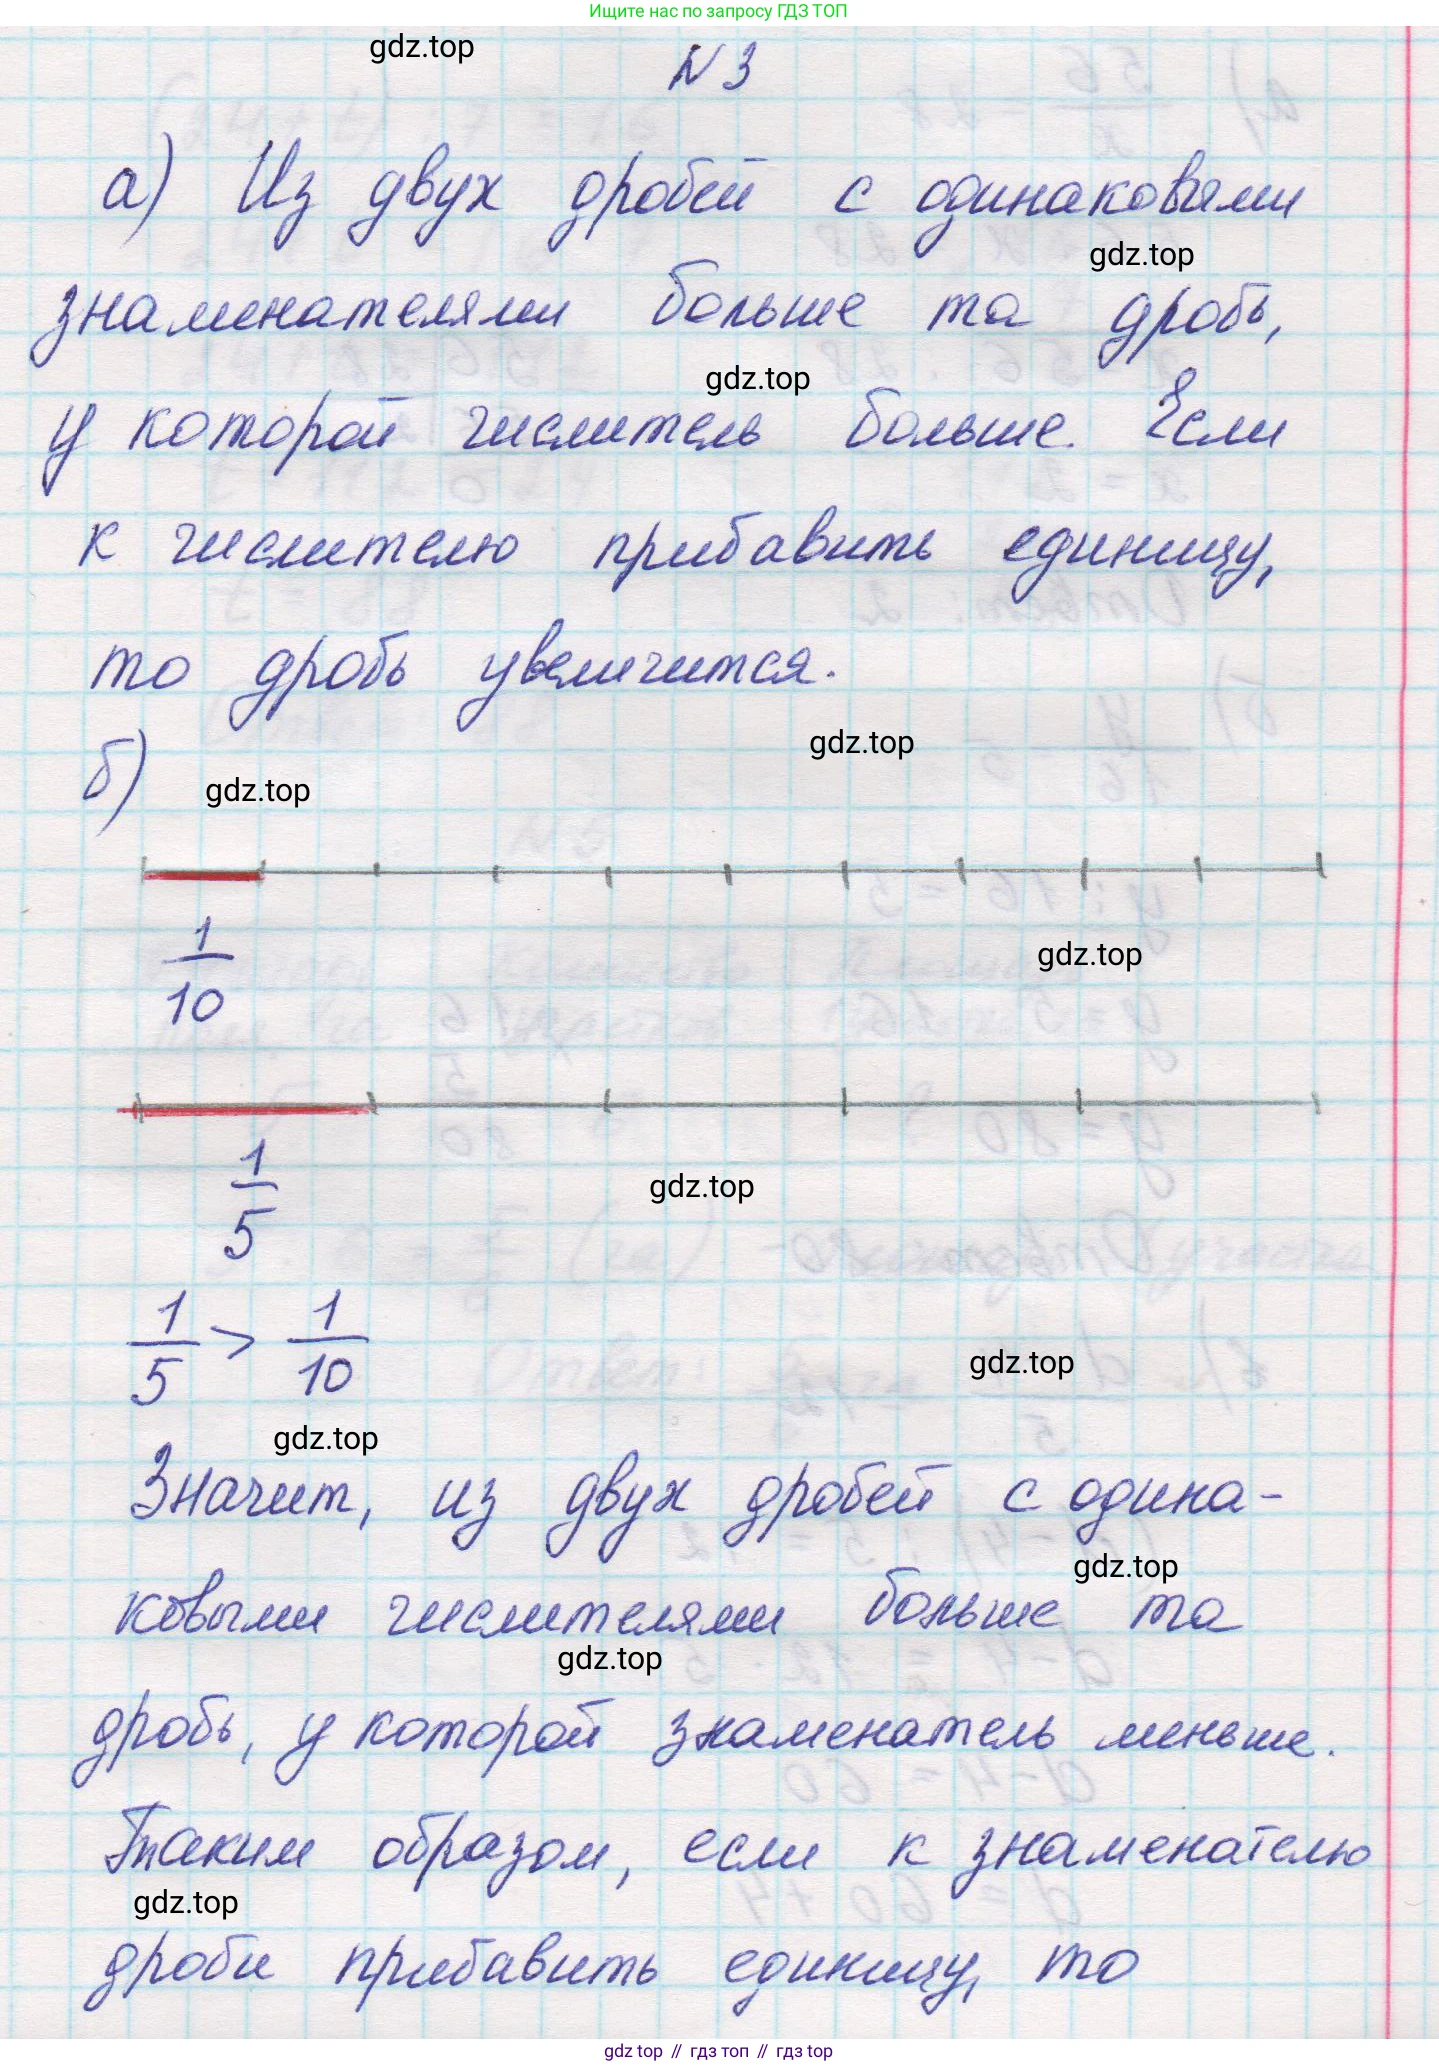 Ищите нас по запросу ГДЗ ТОП
gdz.top
N 3
а) Из двух дробей с одинаковыми
gdz.top
знаменателями больше та дробь,
gdz.top
у которой числитель больше. Если
к числителю прибавить единицу,
то дробь увеличится.
gdz.top
б)
gdz.top
1
10
gdz.top
1
5
gdz.top
1/5 > 1/10
gdz.top
gdz.top
Значит, из двух дробей с одина-
gdz.top
ковыми числителями больше та
gdz.top
дробь, у которой знаменатель меньше.
Таким образом, если к знаменателю
gdz.top
дроби прибавить единицу, то
gdz top // гдз топ // гдз top